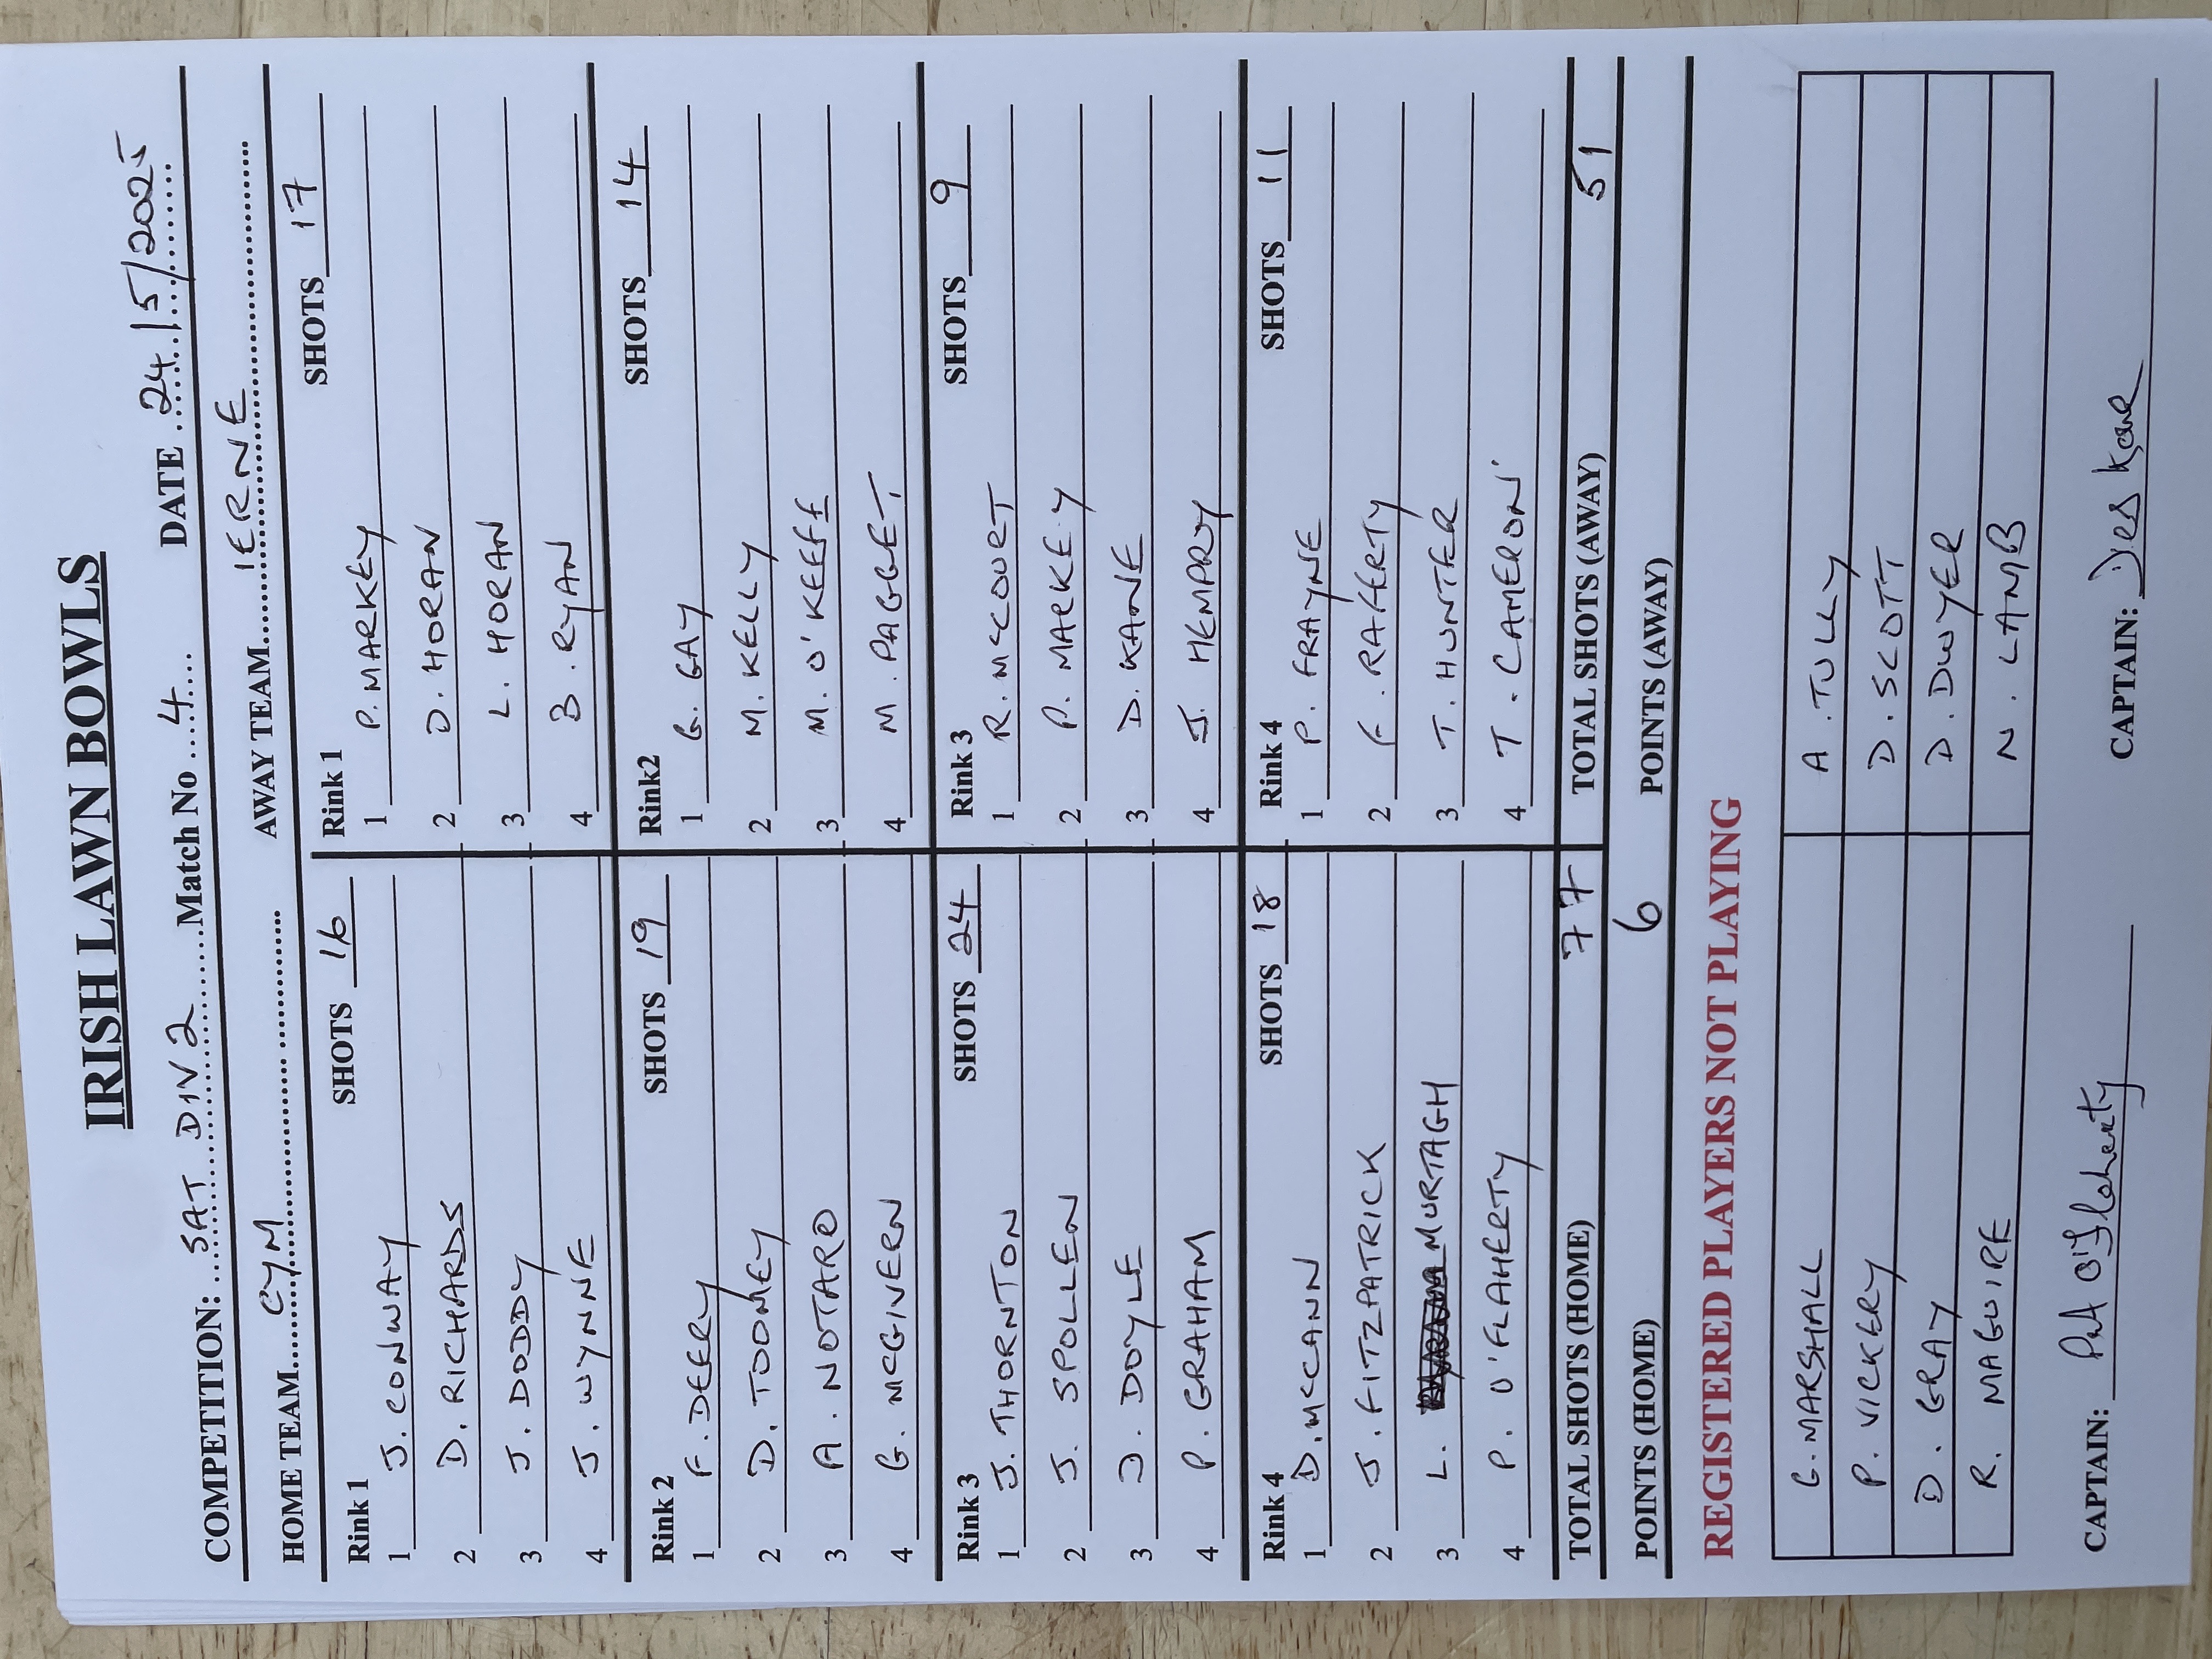 IRISH LAWN BOWLS
COMPETITION: SAT DIV 2 Match No 4 DATE 24/5/2025
HOME TEAM CYM AWAY TEAM IERNE
Rink 1 SHOTS 16 Rink 1 SHOTS 17
1 J. CONWAY 1 P. MARKEY
2 D. RICHARDS 2 D. HORAN
3 J. DODDY 3 L. HORAN
4 J. WYNNE 4 B. RYAN
Rink 2 SHOTS 19 Rink2 SHOTS 14
1 F. DEERY 1 G. GAY
2 D. TOOMEY 2 M. KELLY
3 A. NOTARO 3 M. O'KEEFF
4 G. MCGIVERN 4 M. PAGGET
Rink 3 SHOTS 24 Rink 3 SHOTS 9
1 J. THORNTON 1 R. McCOURT
2 J. SPOLLEN 2 P. MARKEY
3 J. DOYLE 3 D. KANE
4 P. GRAHAM 4 J. HEMPRY
Rink 4 SHOTS 18 Rink 4 SHOTS 11
1 D. McCANN 1 P. FRAYNE
2 J. FITZPATRICK 2 F. RAFFERTY
3 L. MURTAGH 3 T. HUNTER
4 P. O'FLAHERTY 4 T. CAMERON
TOTAL SHOTS (HOME) 77 TOTAL SHOTS (AWAY) 51
POINTS (HOME) 6 POINTS (AWAY)
REGISTERED PLAYERS NOT PLAYING
G. MARSHALL A. TULLY
P. VICKERY D. SCOTT
D. GRAY D. DWYER
R. MAGUIRE N. LAMB
CAPTAIN: Pat O'Flaherty CAPTAIN: Des Kane